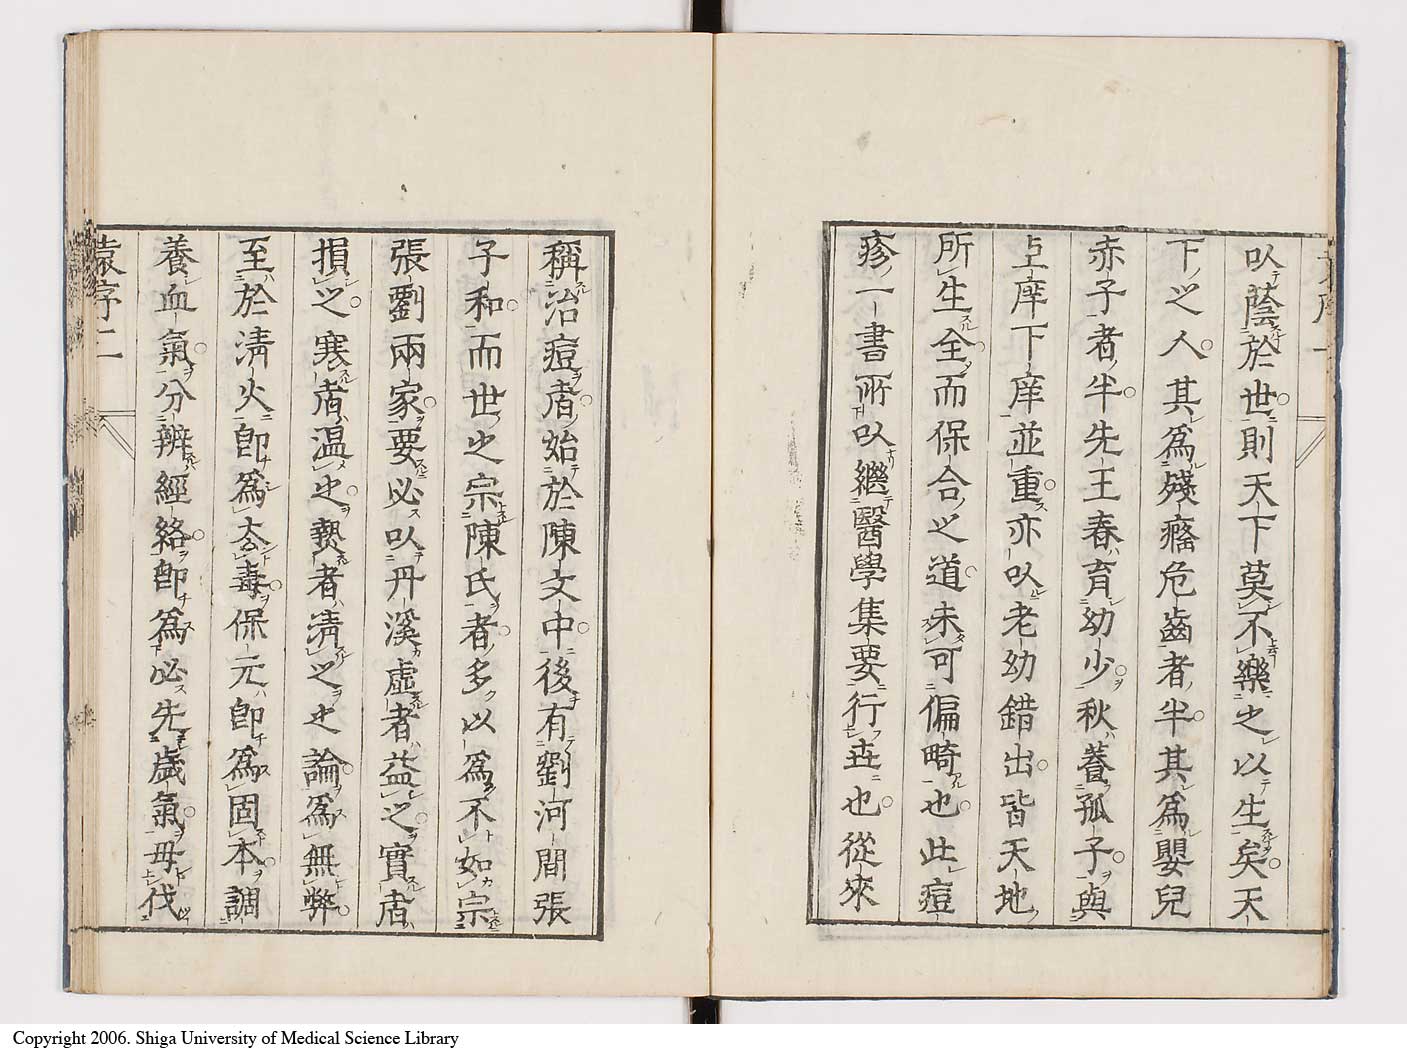 以蔭於世則天下莫不樂之以生矣天
下之人其爲殘癃危齒者半其爲嬰兒
赤子者半先王春育幼少秋養孤子與
上庠下庠並重亦以老幼錯出皆天地
所生全而保合之道未可偏畸也此痘
疹一書所以繼醫學集要行世也從來
稱治痘者始於陳文中後有劉河間張
子和而世之宗陳氏者多以爲不如宗
張劉兩家要必以丹溪虛者益之實者
損之寒者温之熱者清之之論爲無弊
至於清火即爲太毒保元即爲固本調
養血氣分辨經絡即爲必先歲氣毋伐
袁序二
Copyright 2006. Shiga University of Medical Science Library